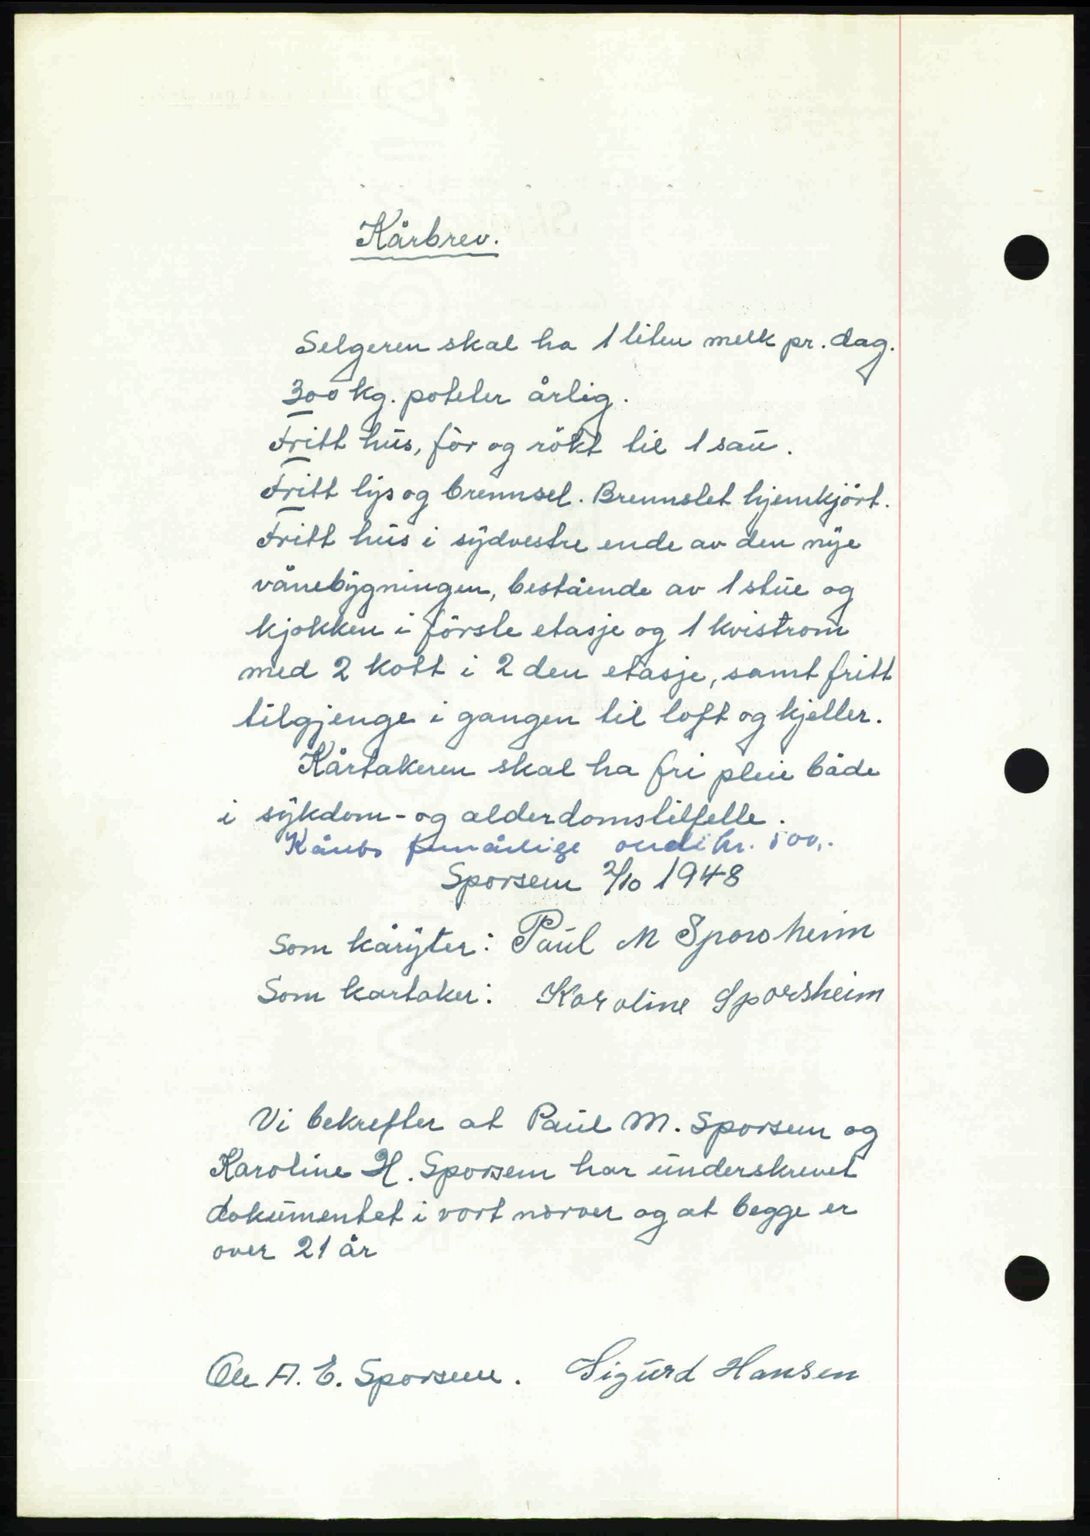 Kårbrev.
Selgeren skal ha 1 liter melk pr. dag.
300 kg. poteter årlig.
Fritt hus, fòr og rökt til 1 sau.
Fritt lys og brennsel. Brennslet hjemkjört.
Fritt hus i sydvestre ende av den nye
vånebygningen, bestående av 1 stue og
kjökken i förste etasje og 1 kvistrom
med 2 kott i 2 den etasje, samt fritt
tilgjenge i gangen til loft og kjeller.
Kårtakeren skal ha fri pleie både
i sykdom- og alderdomstilfelle.
Kårets femårlige verdi kr. 500,.
Sporsem 2/10 1948
Som kåryter: Paul M Sporsheim
Som kartaker: Karoline Sporsheim
Vi bekrefter at Paul M. Sporsem og
Karoline H. Sporsem har underskrevet
dokumentet i vort nærver og at begge er
over 21 år
Ole A. E. Sporsem. Sigurd Hansen